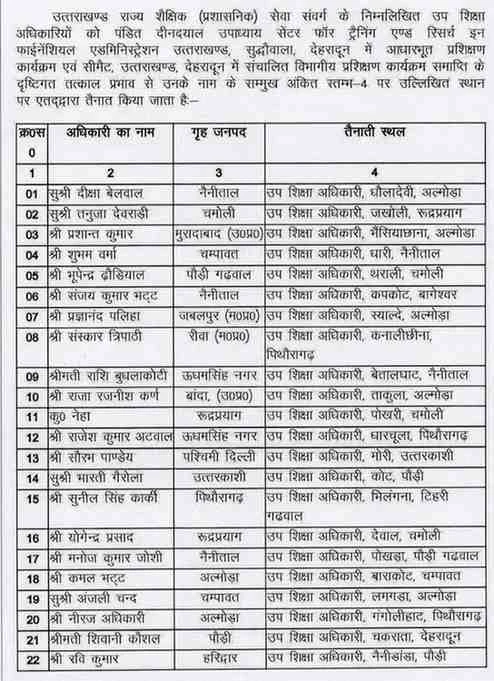 उत्तराखण्ड राज्य शैक्षिक (प्रशासनिक) सेवा संवर्ग के निम्नलिखित उप शिक्षा
अधिकारियों को पंडित दीनदयाल उपाध्याय सेंटर फॉर ट्रैनिंग एण्ड रिसर्च इन
फाईनेंशियल एडमिनिस्ट्रेशन उत्तराखण्ड, सुद्धोवाला, देहरादून में आधारभूत प्रशिक्षण
कार्यक्रम एवं सीमैट, उत्तराखण्ड, देहरादून में संचालित विभागीय प्रशिक्षण कार्यक्रम समाप्ति के
दृष्टिगत तत्काल प्रभाव से उनके नाम के सम्मुख अंकित स्तम्भ–4 पर उल्लिखित स्थान
पर एतद्द्वारा तैनात किया जाता है:–
क्र0स अधिकारी का नाम गृह जनपद तैनाती स्थल
0
1 2 3 4
01 सुश्री दीक्षा बेलवाल नैनीताल उप शिक्षा अधिकारी, धौलादेवी, अल्मोड़ा
02 सुश्री तनुजा देवराड़ी चमोली उप शिक्षा अधिकारी, जखोली, रूद्रप्रयाग
03 श्री प्रशान्त कुमार मुरादाबाद (उ0प्र0) उप शिक्षा अधिकारी, भैंसियाछाना, अल्मोड़ा
04 श्री शुभम वर्मा चम्पावत उप शिक्षा अधिकारी, धारी, नैनीताल
05 श्री भूपेन्द्र ढ़ौडियाल पौड़ी गढवाल उप शिक्षा अधिकारी, थराली, चमोली
06 श्री संजय कुमार भट्ट नैनीताल उप शिक्षा अधिकारी, कपकोट, बागेश्वर
07 श्री प्रज्ञानंद पलिहा जबलपुर (म0प्र0) उप शिक्षा अधिकारी, स्याल्दे, अल्मोड़ा
08 श्री संस्कार त्रिपाठी रीवा (म0प्र0) उप शिक्षा अधिकारी, कनालीछीना,
पिथौरागढ़
09 श्रीमती राशि बुधलाकोटी ऊधमसिंह नगर उप शिक्षा अधिकारी, बेतालघाट, नैनीताल
10 श्री राजा रजनीश कर्ण बांदा, (उ0प्र0) उप शिक्षा अधिकारी, ताकुला, अल्मोड़ा
11 कु0 नेहा रूद्रप्रयाग उप शिक्षा अधिकारी, पोखरी, चमोली
12 श्री राजेश कुमार अटवाल ऊधमसिंह नगर उप शिक्षा अधिकारी, धारचूला, पिथौरागढ़
13 श्री सौरभ पाण्डेय पश्चिमी दिल्ली उप शिक्षा अधिकारी, मोरी, उत्तरकाशी
14 सुश्री भारती गैरोला उत्तरकाशी उप शिक्षा अधिकारी, कोट, पौड़ी
15 श्री सुनील सिंह कार्की पिथौरागढ़ उप शिक्षा अधिकारी, भिलंगना, टिहरी
गढवाल
16 श्री योगेन्द्र प्रसाद रूद्रप्रयाग उप शिक्षा अधिकारी, देवाल, चमोली
17 श्री मनोज कुमार जोशी नैनीताल उप शिक्षा अधिकारी, पोखड़ा, पौड़ी गढवाल
18 श्री कमल भट्ट अल्मोड़ा उप शिक्षा अधिकारी, बाराकोट, चम्पावत
19 सुश्री अंजली चन्द चम्पावत उप शिक्षा अधिकारी, लमगडा, अल्मोड़ा
20 श्री नीरज अधिकारी अल्मोड़ा उप शिक्षा अधिकारी, गंगोलीहाट, पिथौरागढ़
21 श्रीमती शिवानी कौशल पौड़ी उप शिक्षा अधिकारी, चकराता, देहरादून
22 श्री रवि कुमार हरिद्वार उप शिक्षा अधिकारी, नैनीडांडा, पौड़ी